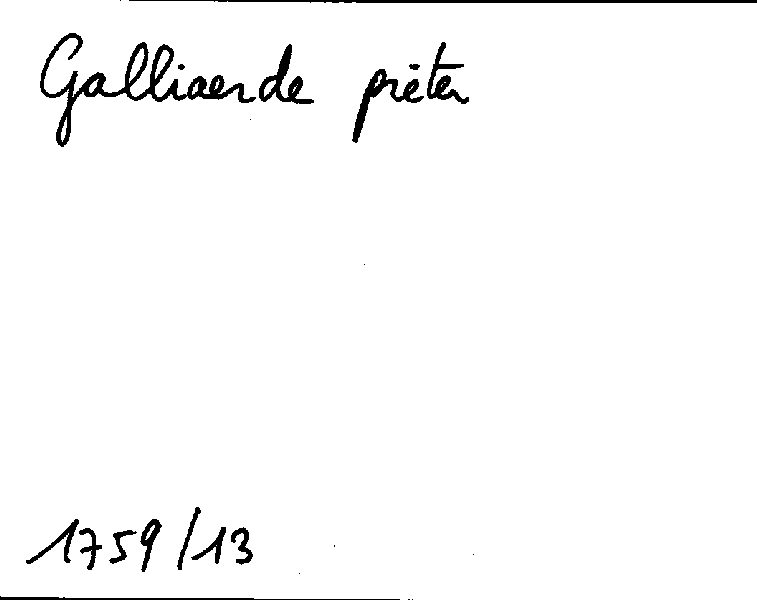 Galliaerde piéter
1759/13